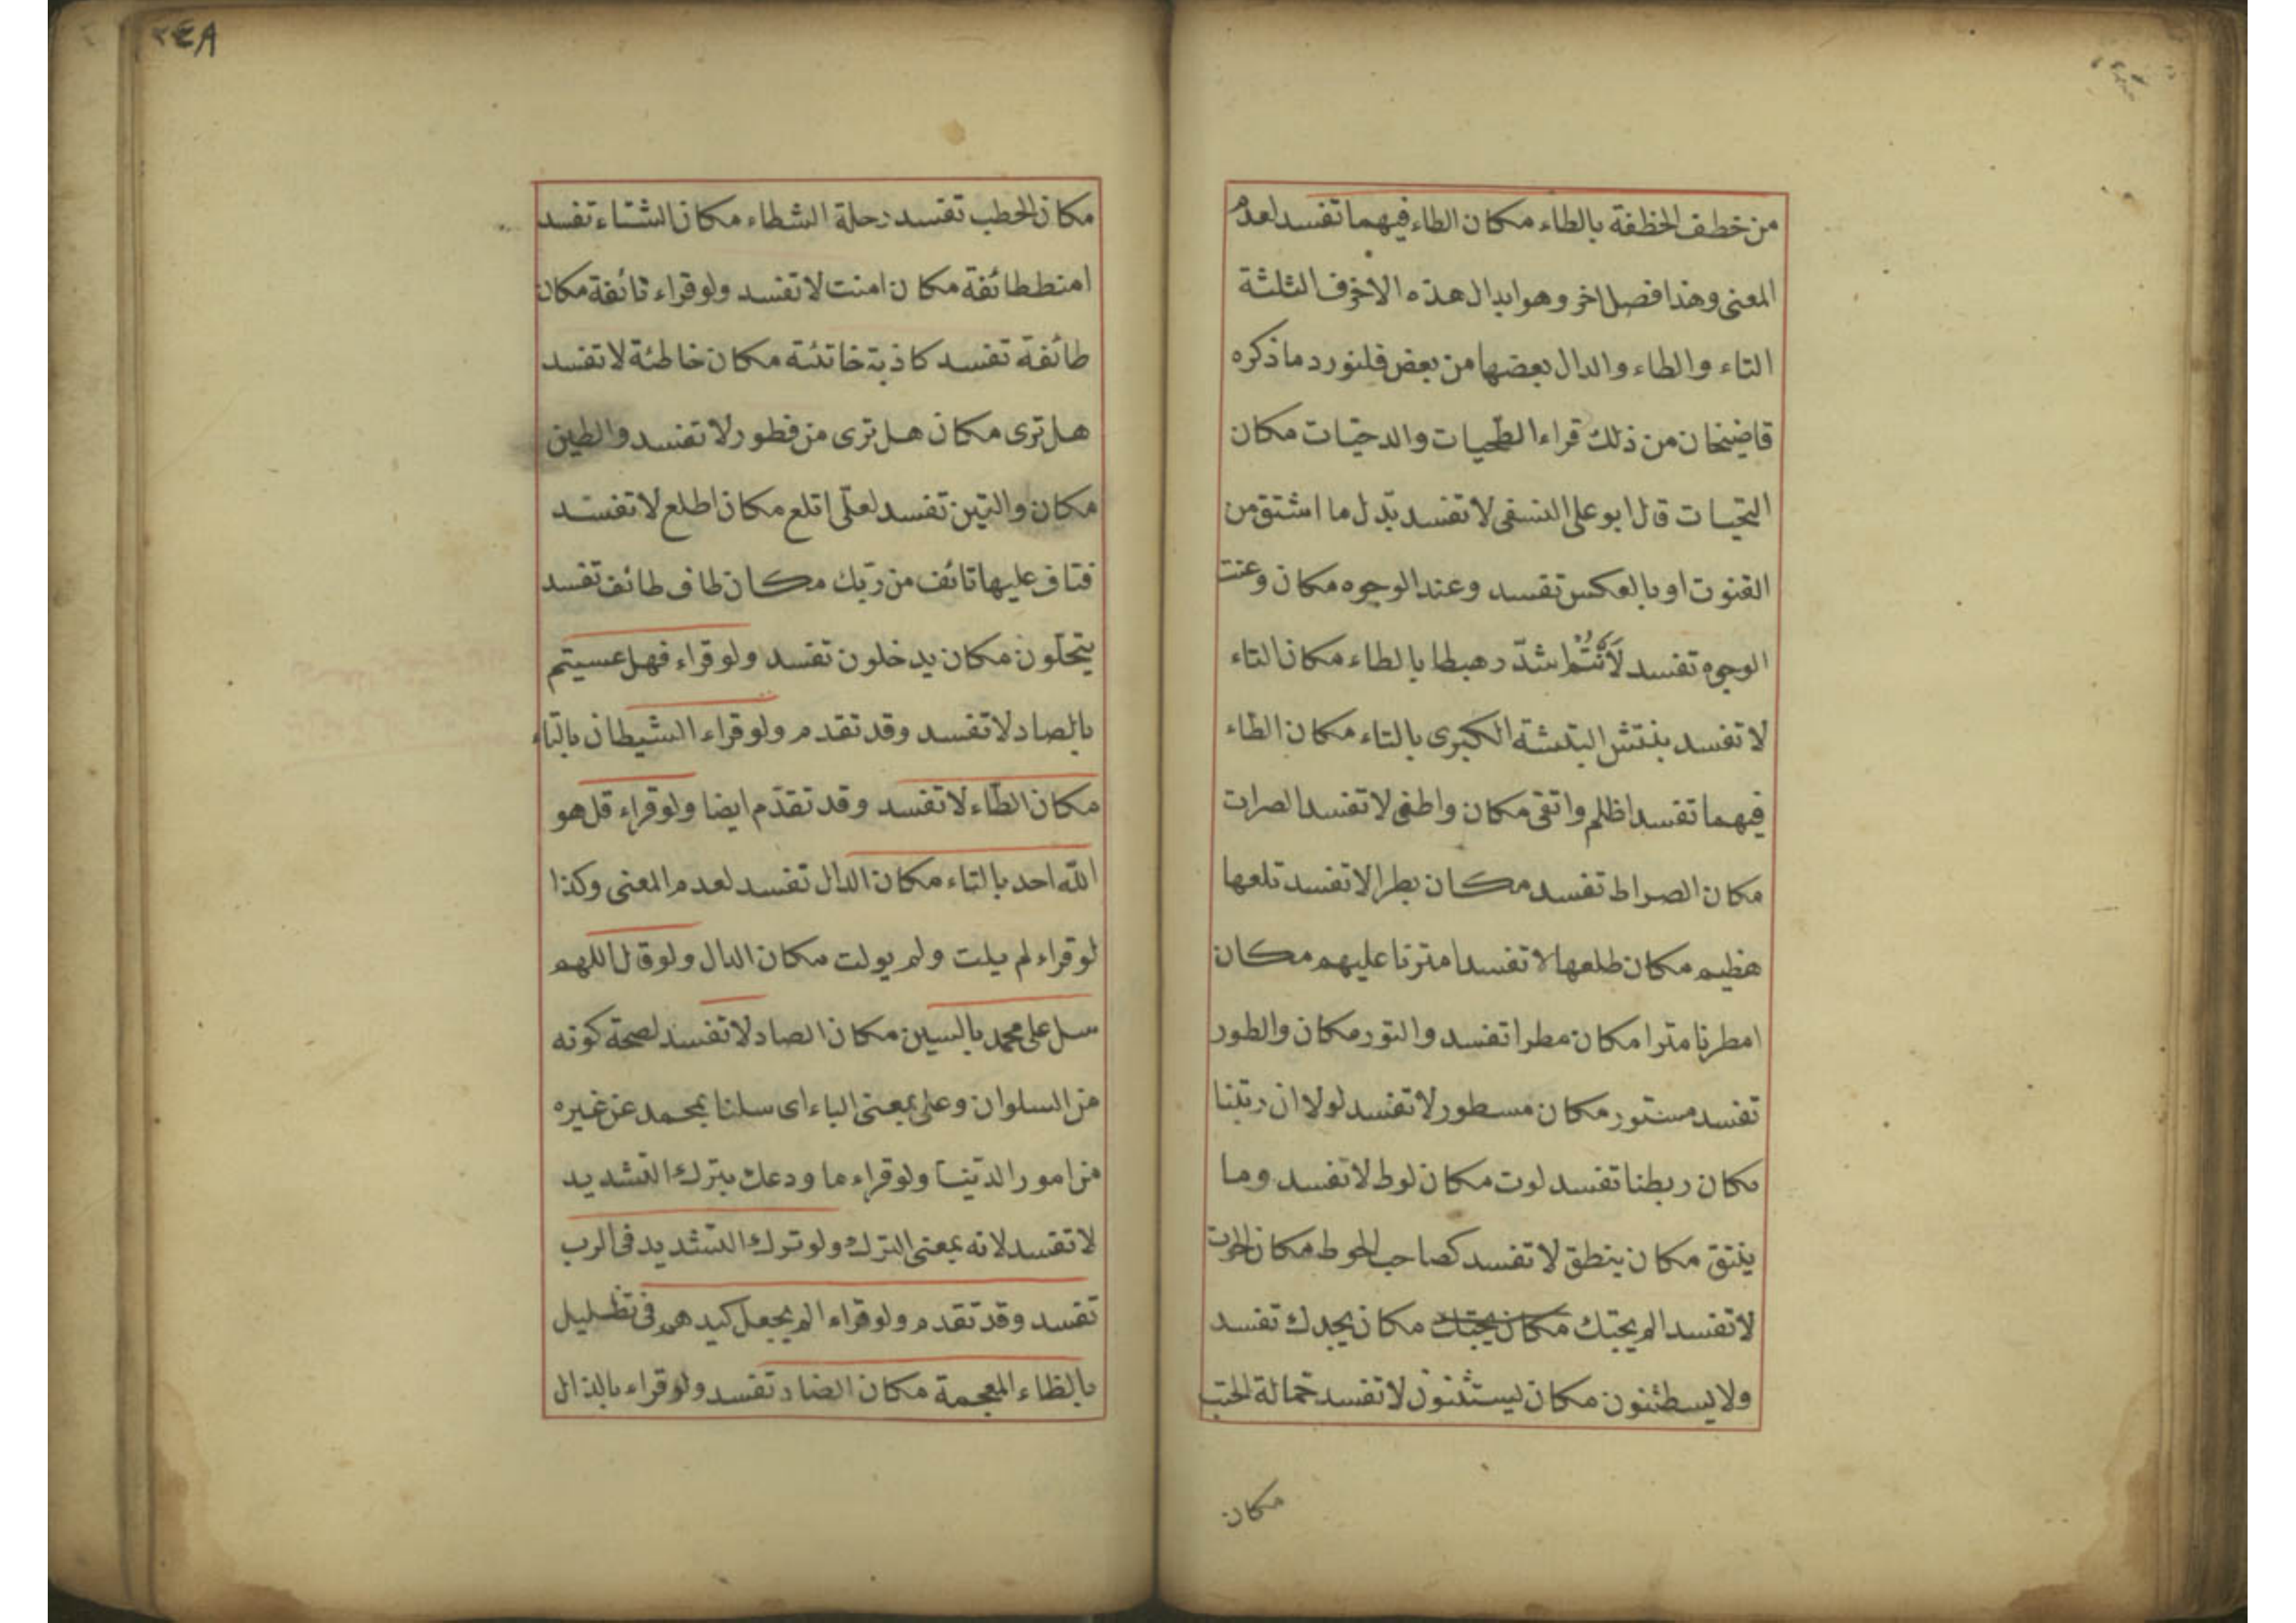 من خطف الخظفة بالظاء مكان الطاء فيهما تفسد لعدم
المعنى وهذا فصل اخر وهو ابدال هذه الاحرف الثلثة
التاء والطاء والدال بعضها من بعض فلنورد ما ذكره
قاضيخان من ذلك قراء الطحيات والدحيات مكان
التحيات قال ابو على النسفى لا تفسد بدل ما اشتق من
القنوت او بالعكس تفسد وعند الوجوه مكان وعنت
الوجوه تفسد لأنتم اشد رهبطا بالطاء مكان التاء
لا تفسد بنتش البتشة الكبرى بالتاء مكان الطاء
فيهما تفسد اظلم واتقى مكان واطغى لا تفسد الصرات
مكان الصراط تفسد مكان بطرا لا تفسد تلعها
هظيم مكان طلعها لا تفسد امترنا عليهم مكان
امطرنا مترا مكان مطرا تفسد والتور مكان والطور
تفسد مستور مكان مسطور لا تفسد لولا ان ربتنا
مكان ربطنا تفسد لوت مكان لوط لا تفسد وما
ينتق مكان ينطق لا تفسد كصاحب الحوط مكان الحوت
لا تفسد الم يجتك مكان يجتك مكان يجدك تفسد
ولا يسطثنون مكان يستثنون لا تفسد حمالة الحتب
مكان
٢٤٨
مكان الحطب تفسد رحلة الشطاء مكان الشتاء تفسد
امنط طائفة مكان امنت لا تفسد ولو قراء تائفة مكان
طائفة تفسد كاذبة خاتئة مكان خاطئة لا تفسد
هل ترى مكان هل ترى من فطور لا تفسد والطين
مكان والتين تفسد لعلى اتلع مكان اطلع لا تفسد
فتاف عليها تائف من ربك مكان طاف طائف تفسد
يتخلون مكان يدخلون تفسد ولو قراء فهل عسيتم
بالصاد لا تفسد وقد تقدم ولو قراء الشيطان بالتاء
مكان الطاء لا تفسد وقد تقدم ايضا ولو قراء قل هو
الله احد بالتاء مكان الدال تفسد لعدم المعنى وكذا
لو قراء لم يلت ولم يولت مكان الدال ولو قال اللهم
سل على محمد بالسين مكان الصاد لا تفسد لصحة كونه
من السلوان وعلى بمعنى الباء اى سلنا بمحمد عن غيره
من امور الدنيا ولو قراء ما ودعك بترك التشديد
لا تفسد لانه بمعنى الترك ولو ترك التشديد فى الرب
تفسد وقد تقدم ولو قراء الم يجعل كيدهم فى تظليل
بالظاء المعجمة مكان الضاد تفسد ولو قراء بالذال